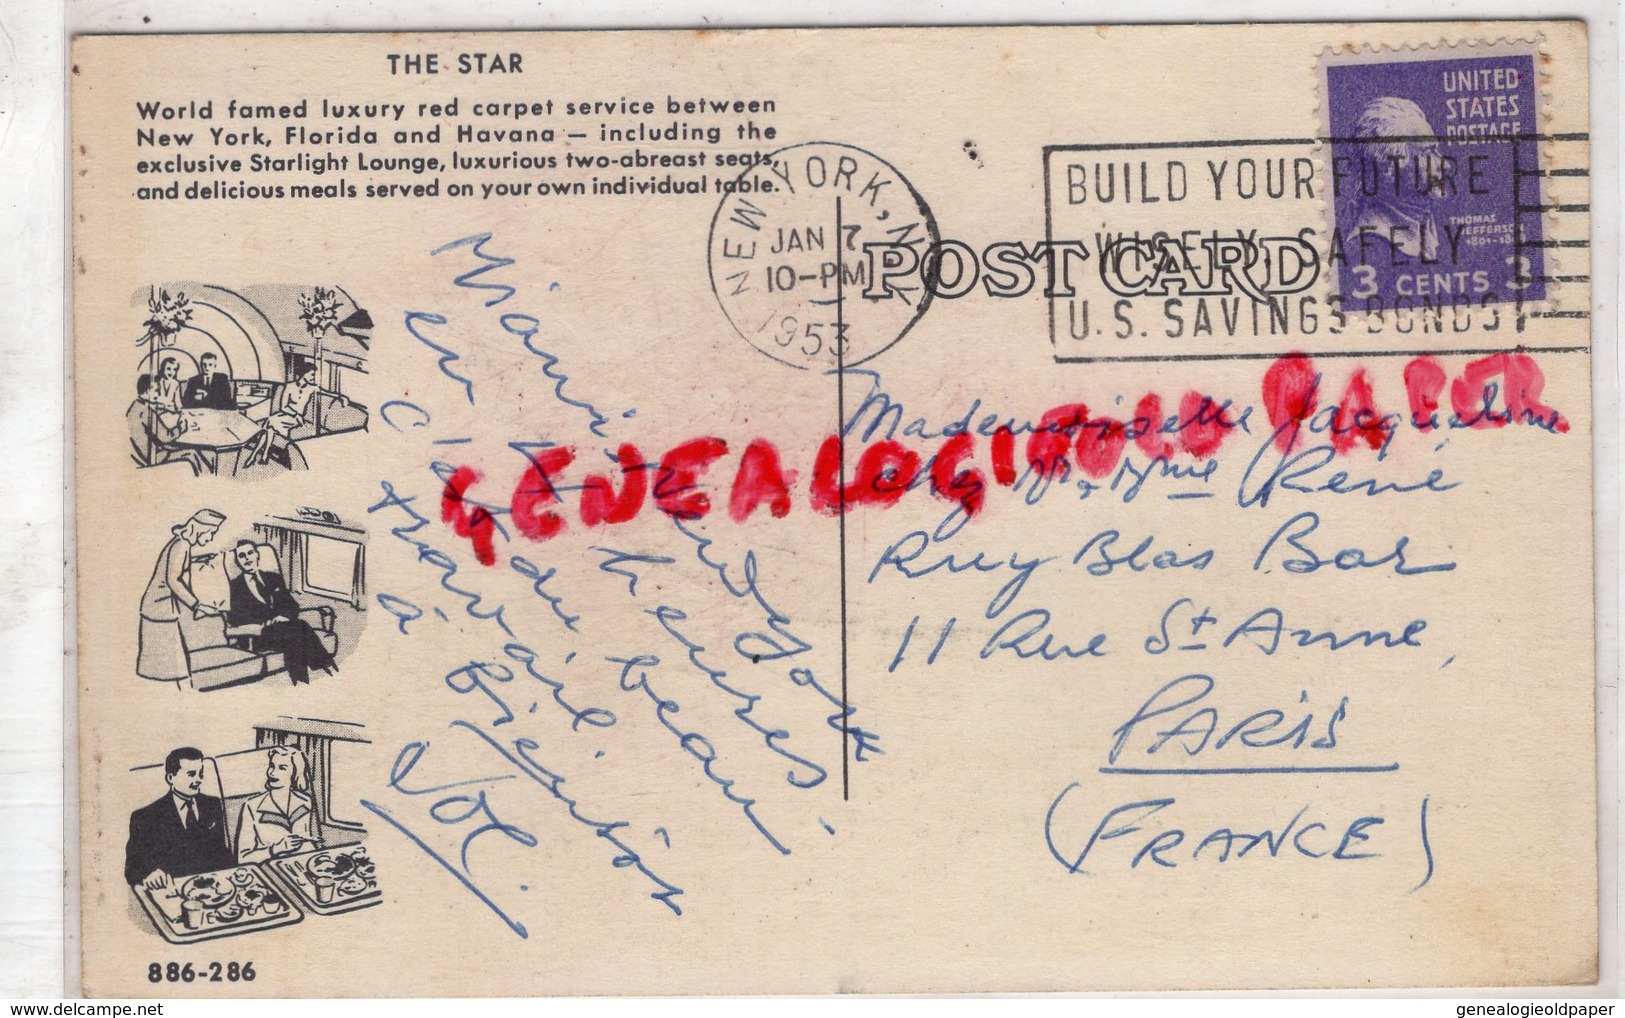 THE STAR
World famed luxury red carpet service between
New York, Florida and Havana — including the
exclusive Starlight Lounge, luxurious two-abreast seats,
and delicious meals served on your own individual table.
NEW YORK, N.Y.
JAN 7
10-PM
1953
BUILD YOUR FUTURE
WISELY, SAFELY
U.S. SAVINGS BONDS
UNITED
STATES
POSTAGE
THOMAS
JEFFERSON
3 CENTS 3
POST CARD
GENEALOGIEOLD PAPER
Miami New York
en heures
C'est du beau
travail.
à bientôt
Mademoiselle Jacqueline
chez Mr & Mme René
Ruy Blas Bar
11 Rue St Anne,
PARIS
(FRANCE)
886-286
delcampe.net
genealogieoldpaper